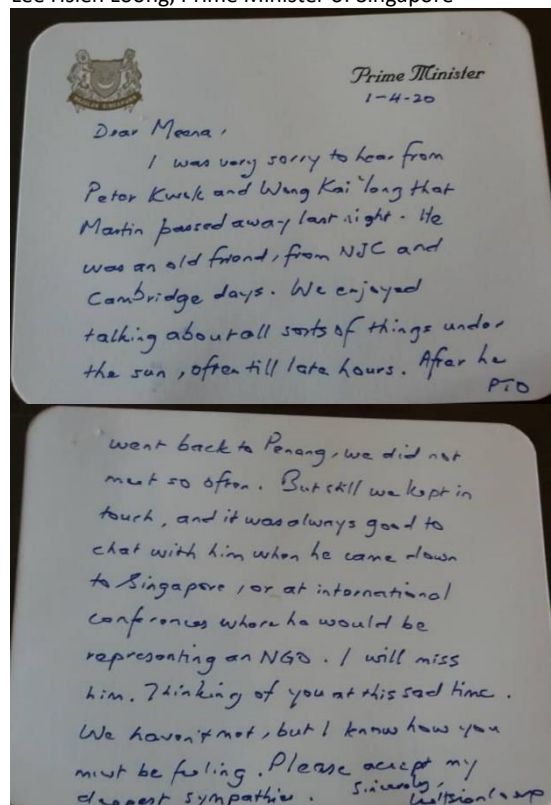 Lee Hsien Loong, Prime Minister of Singapore
Prime Minister
1-4-20
Dear Meena,
I was very sorry to hear from
Peter Kwek and Wong Kai long that
Martin passed away last night. He
was an old friend, from NJC and
Cambridge days. We enjoyed
talking about all sorts of things under
the sun, often till late hours. After he
PTO
went back to Penang, we did not
meet so often. But still we kept in
touch, and it was always good to
chat with him when he came down
to Singapore, or at international
conferences where he would be
representing an NGO. I will miss
him. Thinking of you at this sad time.
We haven't met, but I know how you
must be feeling. Please accept my
deepest sympathies. Sincerely,